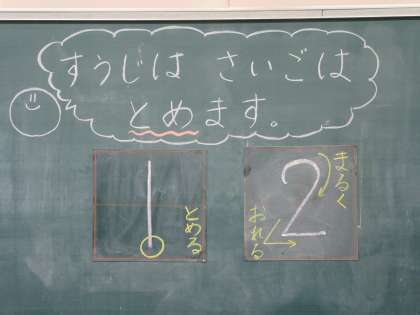 すうじは さいごは
とめます。
1
とめる
2
まるく
おれる